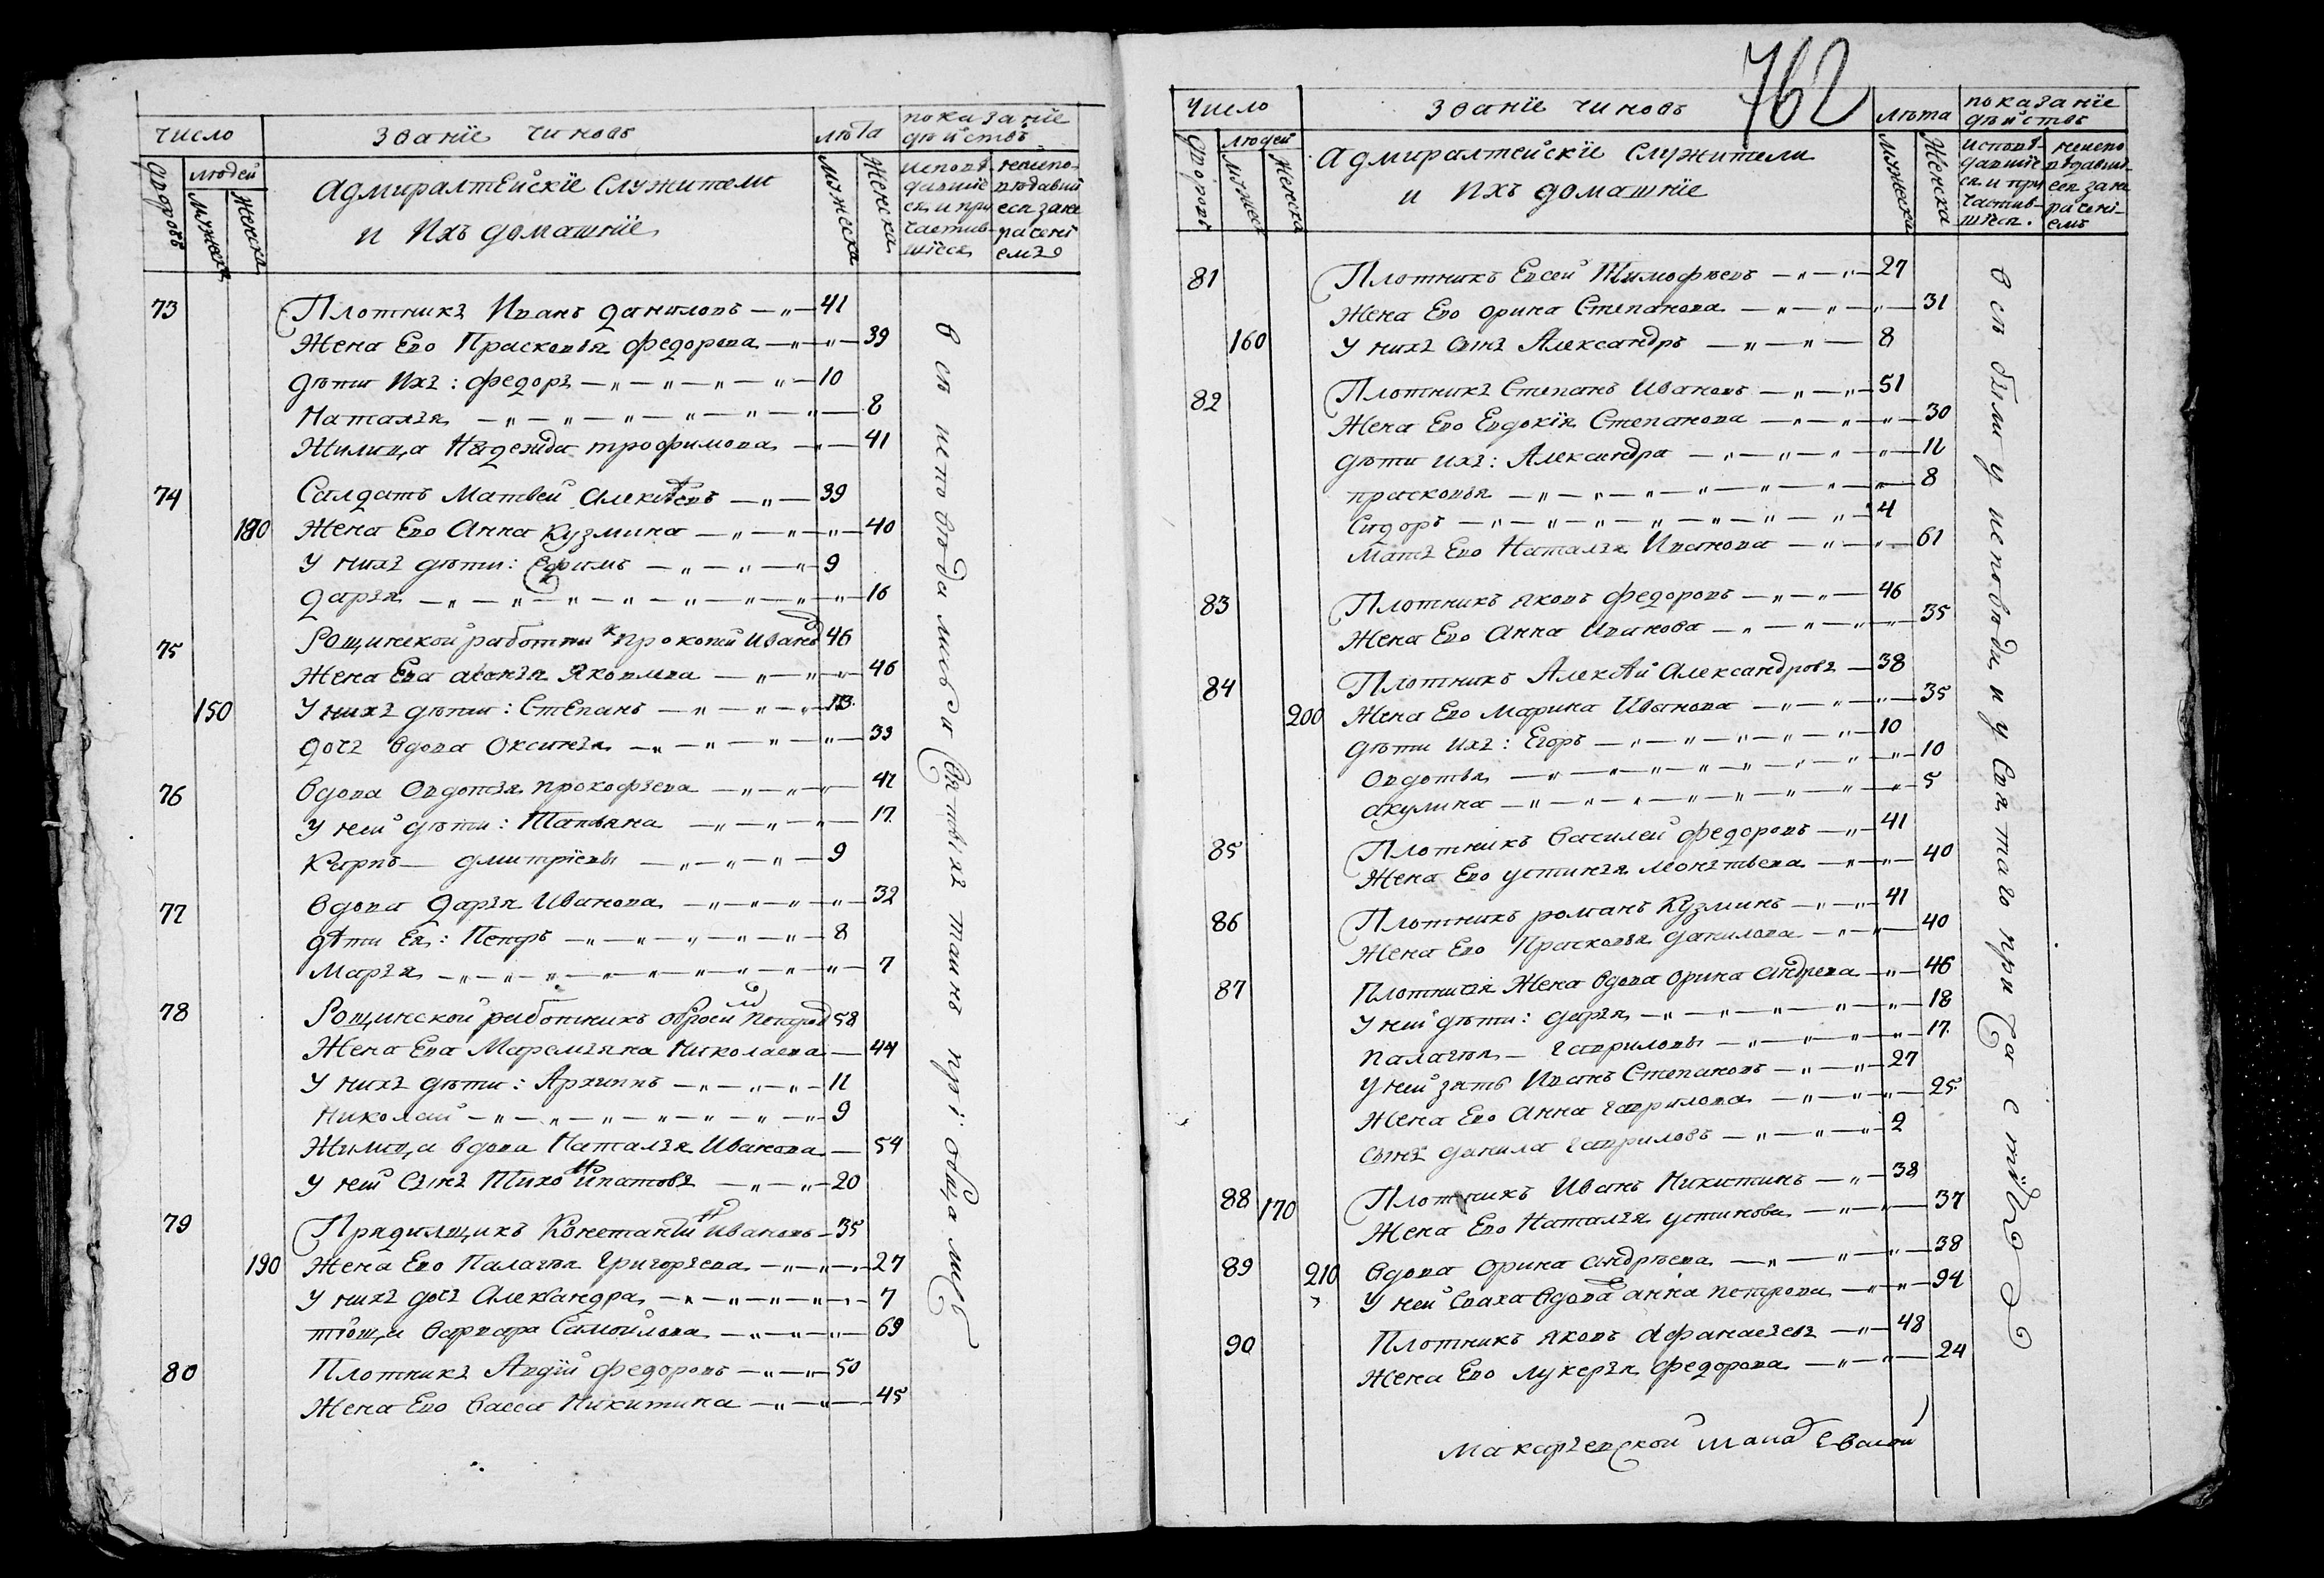 число
званїе чиновъ
лѣта
показанїе дѣйствъ
дворовъ
людей
мужеска
женска
адмиралтейскїе служители
и ихъ домашнїе
мужеска
женска
исповѣ-
давшїе
ся и при
частив-
шїеся
неиспо-
вѣдавшї
еся за не
раченї
емъ
73 Плотникъ Иванъ Даниловъ 41
Жена Ево Прасковья Федорова 39
Дѣти Ихъ: Федоръ 10
Наталья 8
Жилица Надежда трофимова 41
74 Салдатъ Матвей Алексѣевъ 39
180 Жена Ево Анна Кузмина 40
У нихъ дѣти: Ефимъ 9
Дарья 16
75 Рощинской работникъ Прокопей Ивановъ 46
Жена Ева аксинья Яковлева 46
150 У нихъ дѣти: Степанъ 13
Дочь вдова Оксинья 33
76 Вдова Овдотья прокофьева 41
У ней дѣти: Татьяна 17
Карпъ Дмитрїевы 9
77 Вдова Дарья Иванова 32
Дѣти Ея: Петръ 8
Марья 7
78 Рощинской работникъ Петровъ 58
Жена Ева Маремьяна Николаева 44
У нихъ дѣти: Архиппъ 11
Николай 9
Жилица вдова Наталья Иванова 54
У ней Сынъ Тихонъ Ипатовъ 20
79 Прядилщикъ Константинъ Ивановъ 35
190 Жена Ево Палагья Григорьева 27
У нихъ дочь Александра 7
тїоща варвара Самойлова 69
80 Плотникъ Авдїй Федоровъ 50
Жена Ево Васса Никитина 45
вся исповѣдались и Святыхъ таинъ прїобщались
762
Число
званїе чиновъ
лѣта
показанїе дѣйствъ
дворовъ
людей
мужеска
Женска
адмиралтейскїе служители
и ихъ домашнїе
мужеска
Женска
исповѣ-
давшїе
ся и при
частив-
шїеся.
неиспо
вѣдавшї
еся за не
раченї-
емъ
81 Плотникъ Евсей Тимофѣевъ 27
Жена Ево орина Степанова 31
160 У нихъ Сынъ Александръ 8
82 Плотникъ Степанъ Ивановъ 51
Жена Ево Евдокїя Степанова 30
Дѣти ихъ: Александра 12
прасковья 8
Сидоръ 4
Мать Ево Наталья Иванова 61
83 Плотникъ яковъ Федоровъ 46
Жена Ево Анна Иванова 35
84 Плотникъ Алексѣй Александровъ 38
200 Жена Ево Марина Иванова 35
Дѣти ихъ: Егоръ 10
Овдотья 10
акулина 5
85 Плотникъ Василей Федоровъ 41
Жена Ево устинья 40
86 Плотникъ романъ Кузминъ 41
Жена Ево Прасковья Данилова 40
87 Плотничья Жена вдова орина андреева 46
У ней дѣти: Дарья 18
Палагея Гавриловы 17
У ней зять Иванъ Степановъ 27
Жена Ево Анна Гаврилова 25
Сынъ Данила Гавриловъ 2
88 170 Плотникъ Иванъ Никитинъ 38
Жена Ево Наталья устинова 37
89 Вдова Орина андрѣева 38
210 У ней Сваха вдова анна петрова 94
90 Плотникъ яковъ Афанасьевъ 48
Жена Ево лукерья Федорова 24
вся были у исповѣди и у Святаго причастїя
Макарьевской